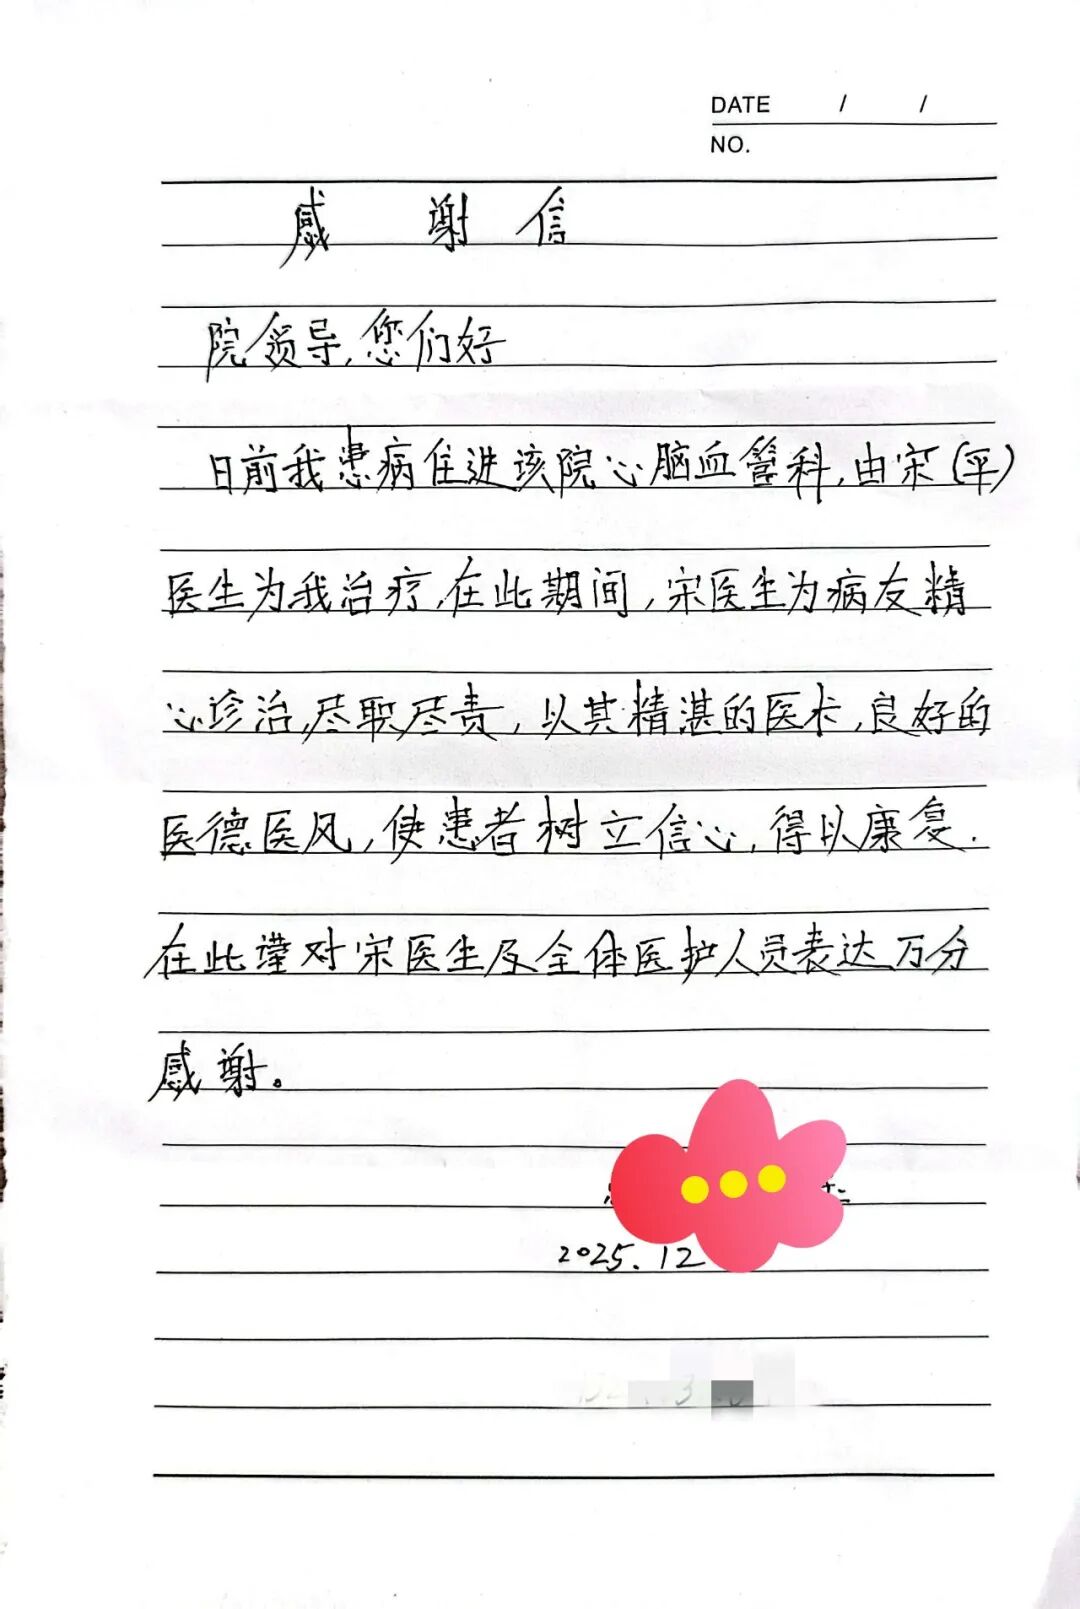 DATE / /
NO.
感 谢 信
院领导,您们好
日前我患病住进该院心脑血管科,由宋(平)
医生为我治疗,在此期间,宋医生为病友精
心诊治,尽职尽责,以其精湛的医术,良好的
医德医风,使患者树立信心,得以康复.
在此谨对宋医生及全体医护人员表达万分
感谢。
2025.12